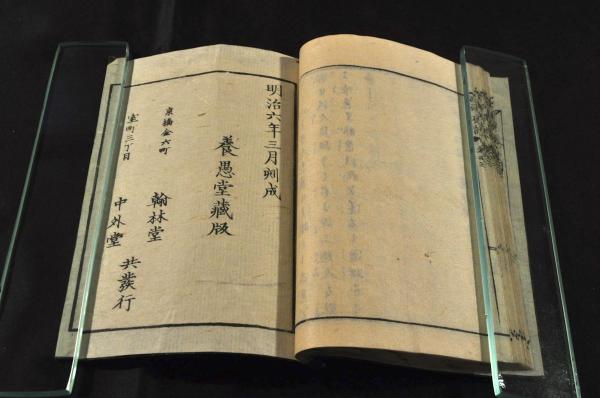 明治六年三月刻成
養愚堂藏版
京橋金六町
翰林堂
室町三丁目
中外堂
共發行